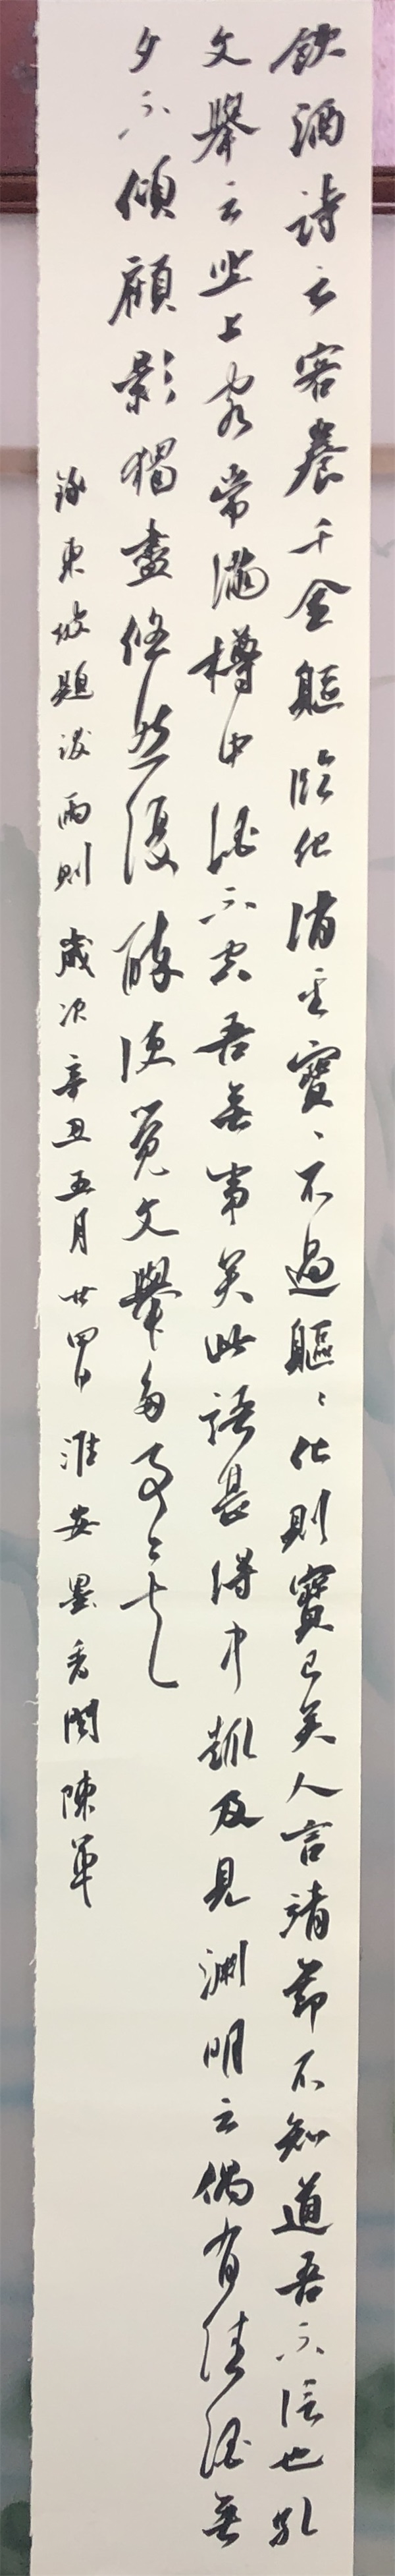 飲酒詩云客養千金軀臨化消其寶寶不過軀軀化則寶已矣人言靖節不知道吾不信也孔
文舉云坐上客常滿樽中酒不空吾無事矣此語甚得中趣及見淵明云偶有佳酒無
夕不傾顧影獨盡悠然復醉便覺文舉多事矣
錄東坡題跋兩則 歲次辛丑五月廿四日 淮安墨香閣陳軍